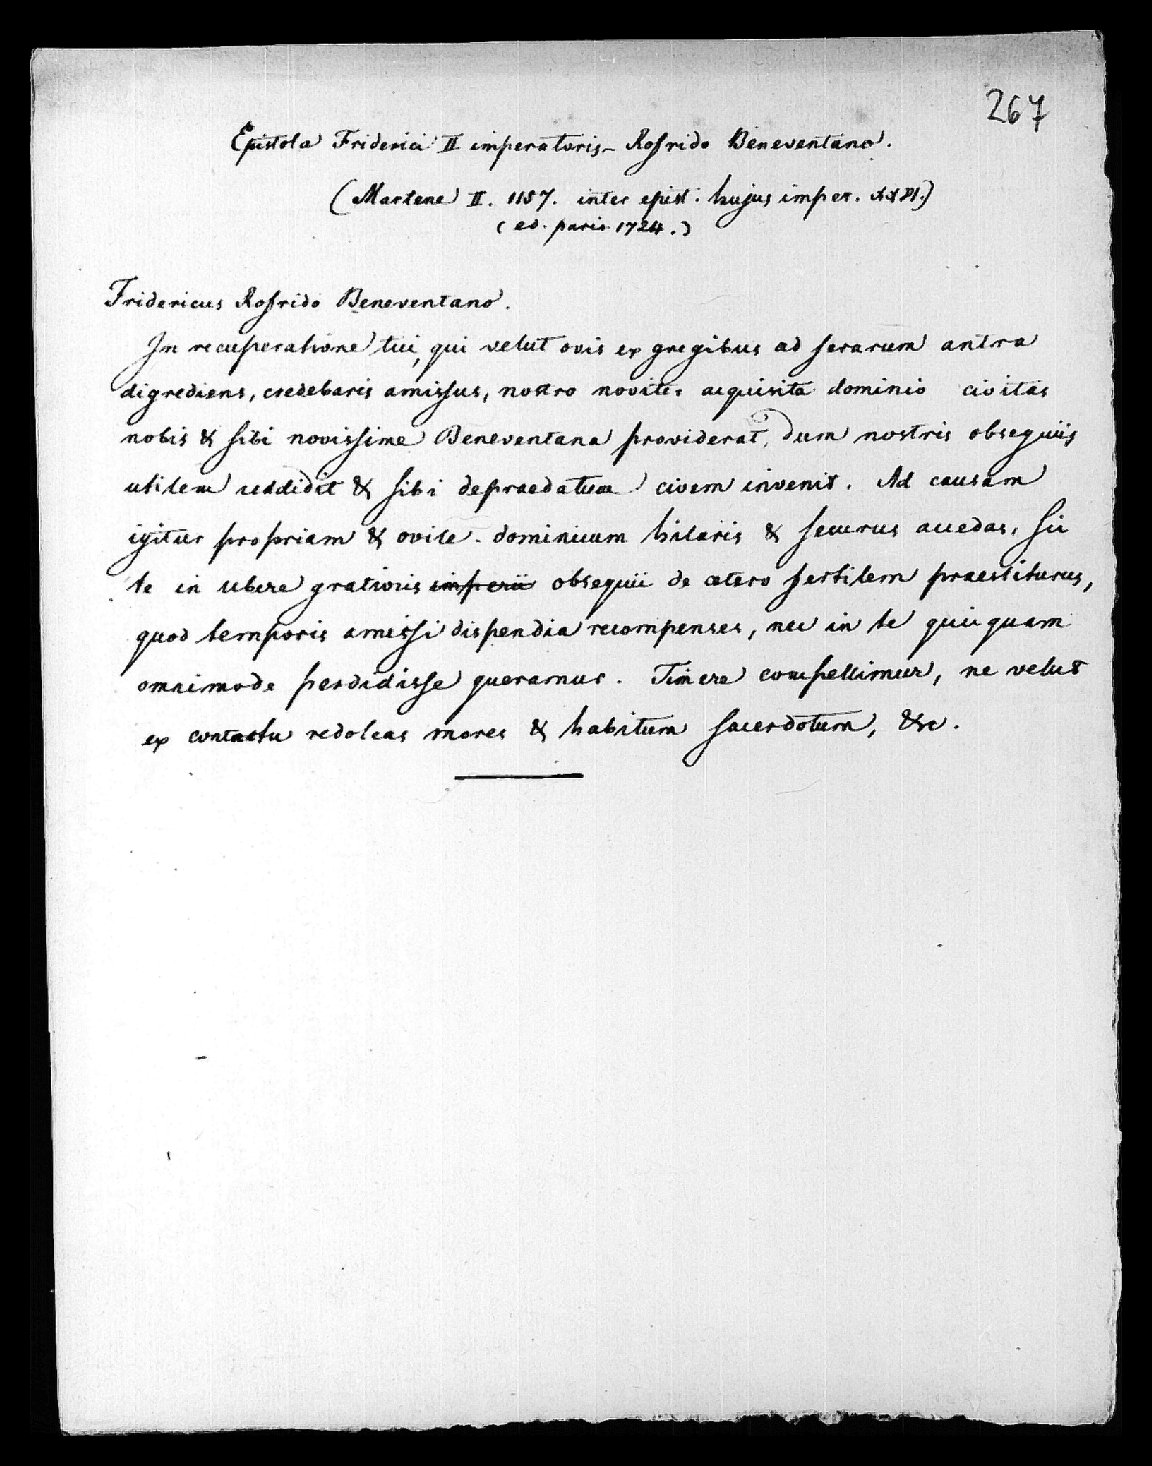 267
Epistola Friderici II imperatoris Rofrido Beneventano.
(Martene II. 1157. inter epist. hujus imper. XXVI.)
(ed. paris 1724.)
Fridericus Rofrido Beneventano.
In recuperatione tui, qui velut ovis ex gregibus ad ferarum antra
digrediens, credebaris amissus, nostro noviter acquisita dominio civitas
nobis & sibi novissime Beneventana providerat, dum nostris obsequiis
utilem reddidit & sibi depraedatum civem invenit. Ad causam
igitur propriam & ovile dominicum hilaris & securus accedas, sic
te in ubere gratioris imperii obsequii de cetero fertilem praestiturus,
quod temporis amissi dispendia recompenses, nec in te quicquam
omnimode perdidisse queramur. Timere compellimur, ne velut
ex contactu redoleas mores & habitum sacerdotum, &c.